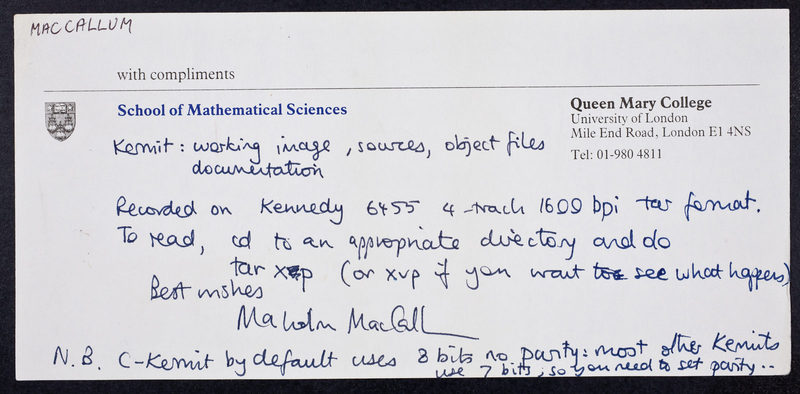 MACCALLUM
with compliments
School of Mathematical Sciences
Queen Mary College
University of London
Mile End Road, London E1 4NS
Tel: 01-980 4811
Kermit: working image, sources, object files
documentation
Recorded on Kennedy 6455 4-track 1600 bpi tar format.
To read, cd to an appropriate directory and do
tar xp (or xvp if you want to see what happens)
Best wishes
Malcolm MacCall
N.B. C-Kermit by default uses 8 bits no parity: most other Kermits
use 7 bits, so you need to set parity..